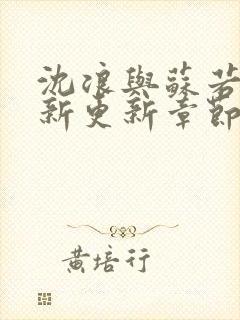 沈浪與蘇若
新更新章節
黃培行